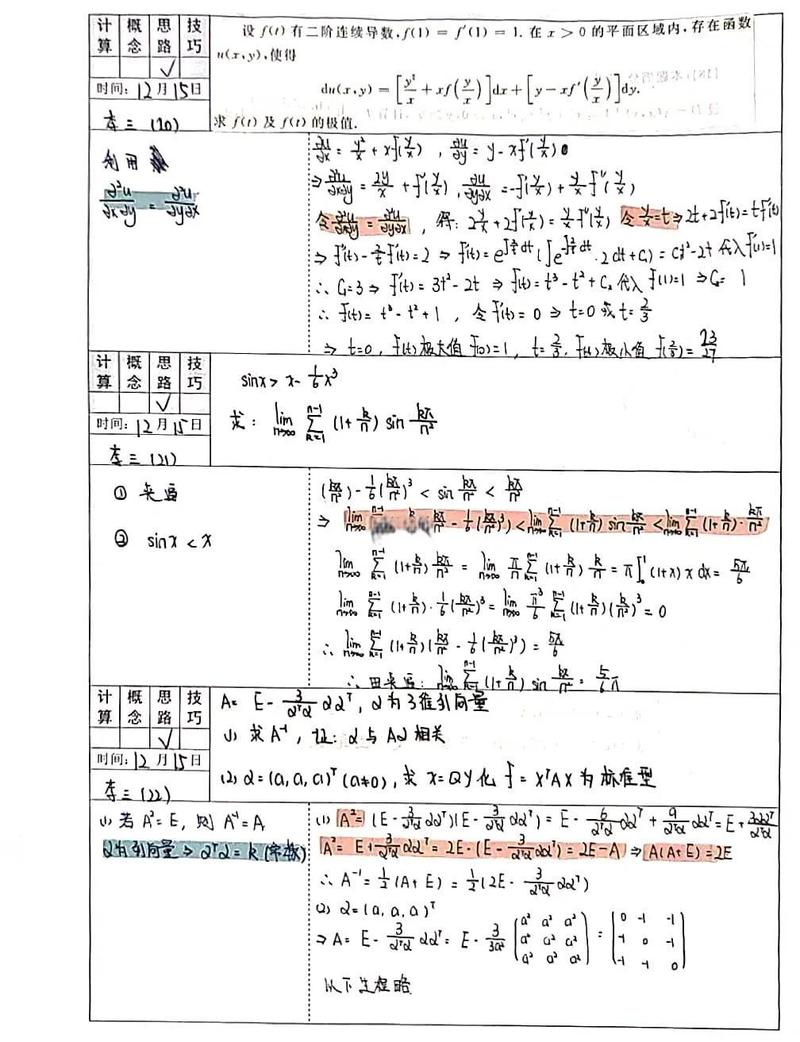 计算 概念 思路 技巧
√
时间：12月15日
李三（20）
设 f(t) 有二阶连续导数, f(1) = f′(1) = 1. 在 x > 0 的平面区域内, 存在函数
u(x,y), 使得
du(x,y) = [y²/x + xf(y/x)]dx + [y − xf′(y/x)]dy.
求 f(t) 及 f(t) 的极值.
利用
∂²u/∂x∂y = ∂²u/∂y∂x
∂u/∂x = y²/x + xf(y/x) , ∂u/∂y = y − xf′(y/x)
⇒ ∂²u/∂x∂y = 2y/x + f′(y/x) , ∂²u/∂y∂x = −f′(y/x) + y/x f″(y/x)
令 ∂²u/∂x∂y = ∂²u/∂y∂x , 得: 2y/x + 2f′(y/x) = y/x f″(y/x) 令 y/x = t ⇒ 2t + 2f′(t) = t f″(t)
⇒ f″(t) − 2/t f′(t) = 2 ⇒ f′(t) = e^{∫2/t dt} (∫e^{−∫2/t dt} · 2dt + C₁) = C₁t² − 2t 代入 f′(1) = 1
∴ C₁ = 3 ⇒ f′(t) = 3t² − 2t ⇒ f(t) = t³ − t² + C₂ 代入 f(1) = 1 ⇒ C₂ = 1
∴ f(t) = t³ − t² + 1 , 令 f′(t) = 0 ⇒ t = 0 或 t = 2/3
⇒ t = 0, f(t) 极大值 f(0) = 1 , t = 2/3, f(t) 极小值 f(2/3) = 23/27
计算 概念 思路 技巧
√
时间：12月15日
李三（21）
sinx > x − 1/6 x³
求: lim n→∞ Σ_{k=1}^{n−1} (1 + k/n) sin kπ/n²
① 夹逼
② sinx < x
(kπ/n²) − 1/6 (kπ/n²)³ < sin kπ/n² < kπ/n²
⇒ lim n→∞ kπ/n² − 1/6 (kπ/n²)³) < lim n→∞ Σ_{k=1}^{n−1} (1 + k/n) sin kπ/n² < lim n→∞ Σ_{k=1}^{n−1} (1 + k/n) · kπ/n²
lim n→∞ Σ_{k=1}^{n−1} (1 + k/n) kπ/n² = lim n→∞ π/n Σ_{k=1}^{n−1} (1 + k/n) k/n = π∫₀¹ (1+x)x dx = 5π/6
lim n→∞ Σ_{k=1}^{n−1} (1 + k/n) · 1/6 (kπ/n²)³ = lim n→∞ π³/6 Σ_{k=1}^{n−1} (1 + k/n) (k/n²)³ = 0
∴ lim n→∞ Σ_{k=1}^{n−1} (1 + k/n) (kπ/n² − 1/6 (kπ/n²)³) = 5π/6
∴ 由夹逼: lim n→∞ Σ_{k=1}^{n−1} (1 + k/n) sin kπ/n² = 5/6 π
计算 概念 思路 技巧
√
时间：12月15日
李三（22）
A = E − 3/αᵀα ααᵀ, α为3维列向量
(1) 求A⁻¹, 证: α与Aα相关
(2) α = (a, a, a)ᵀ (a≠0), 求 x = Qy 化 f = xᵀAx 为标准型
(1) 若 A² = E, 则 A⁻¹ = A
α为列向量 ⇒ αᵀα = k (常数)
(1) A² = (E − 3/αᵀα ααᵀ)(E − 3/αᵀα ααᵀ) = E − 6/αᵀα ααᵀ + 9/αᵀα ααᵀ = E + 3ααᵀ/αᵀα
A² = E + 3/αᵀα ααᵀ = 2E − (E − 3/αᵀα ααᵀ) = 2E − A ⇒ A(A+E) = 2E
∴ A⁻¹ = 1/2 (A + E) = 1/2 (2E − 3/αᵀα ααᵀ)
(2) α = (a, a, a)ᵀ
⇒ A = E − 3/αᵀα ααᵀ = E − 3/3a² (a² a² a²; a² a² a²; a² a² a²) = (0 −1 −1; −1 0 −1; −1 −1 0)
以下过程略